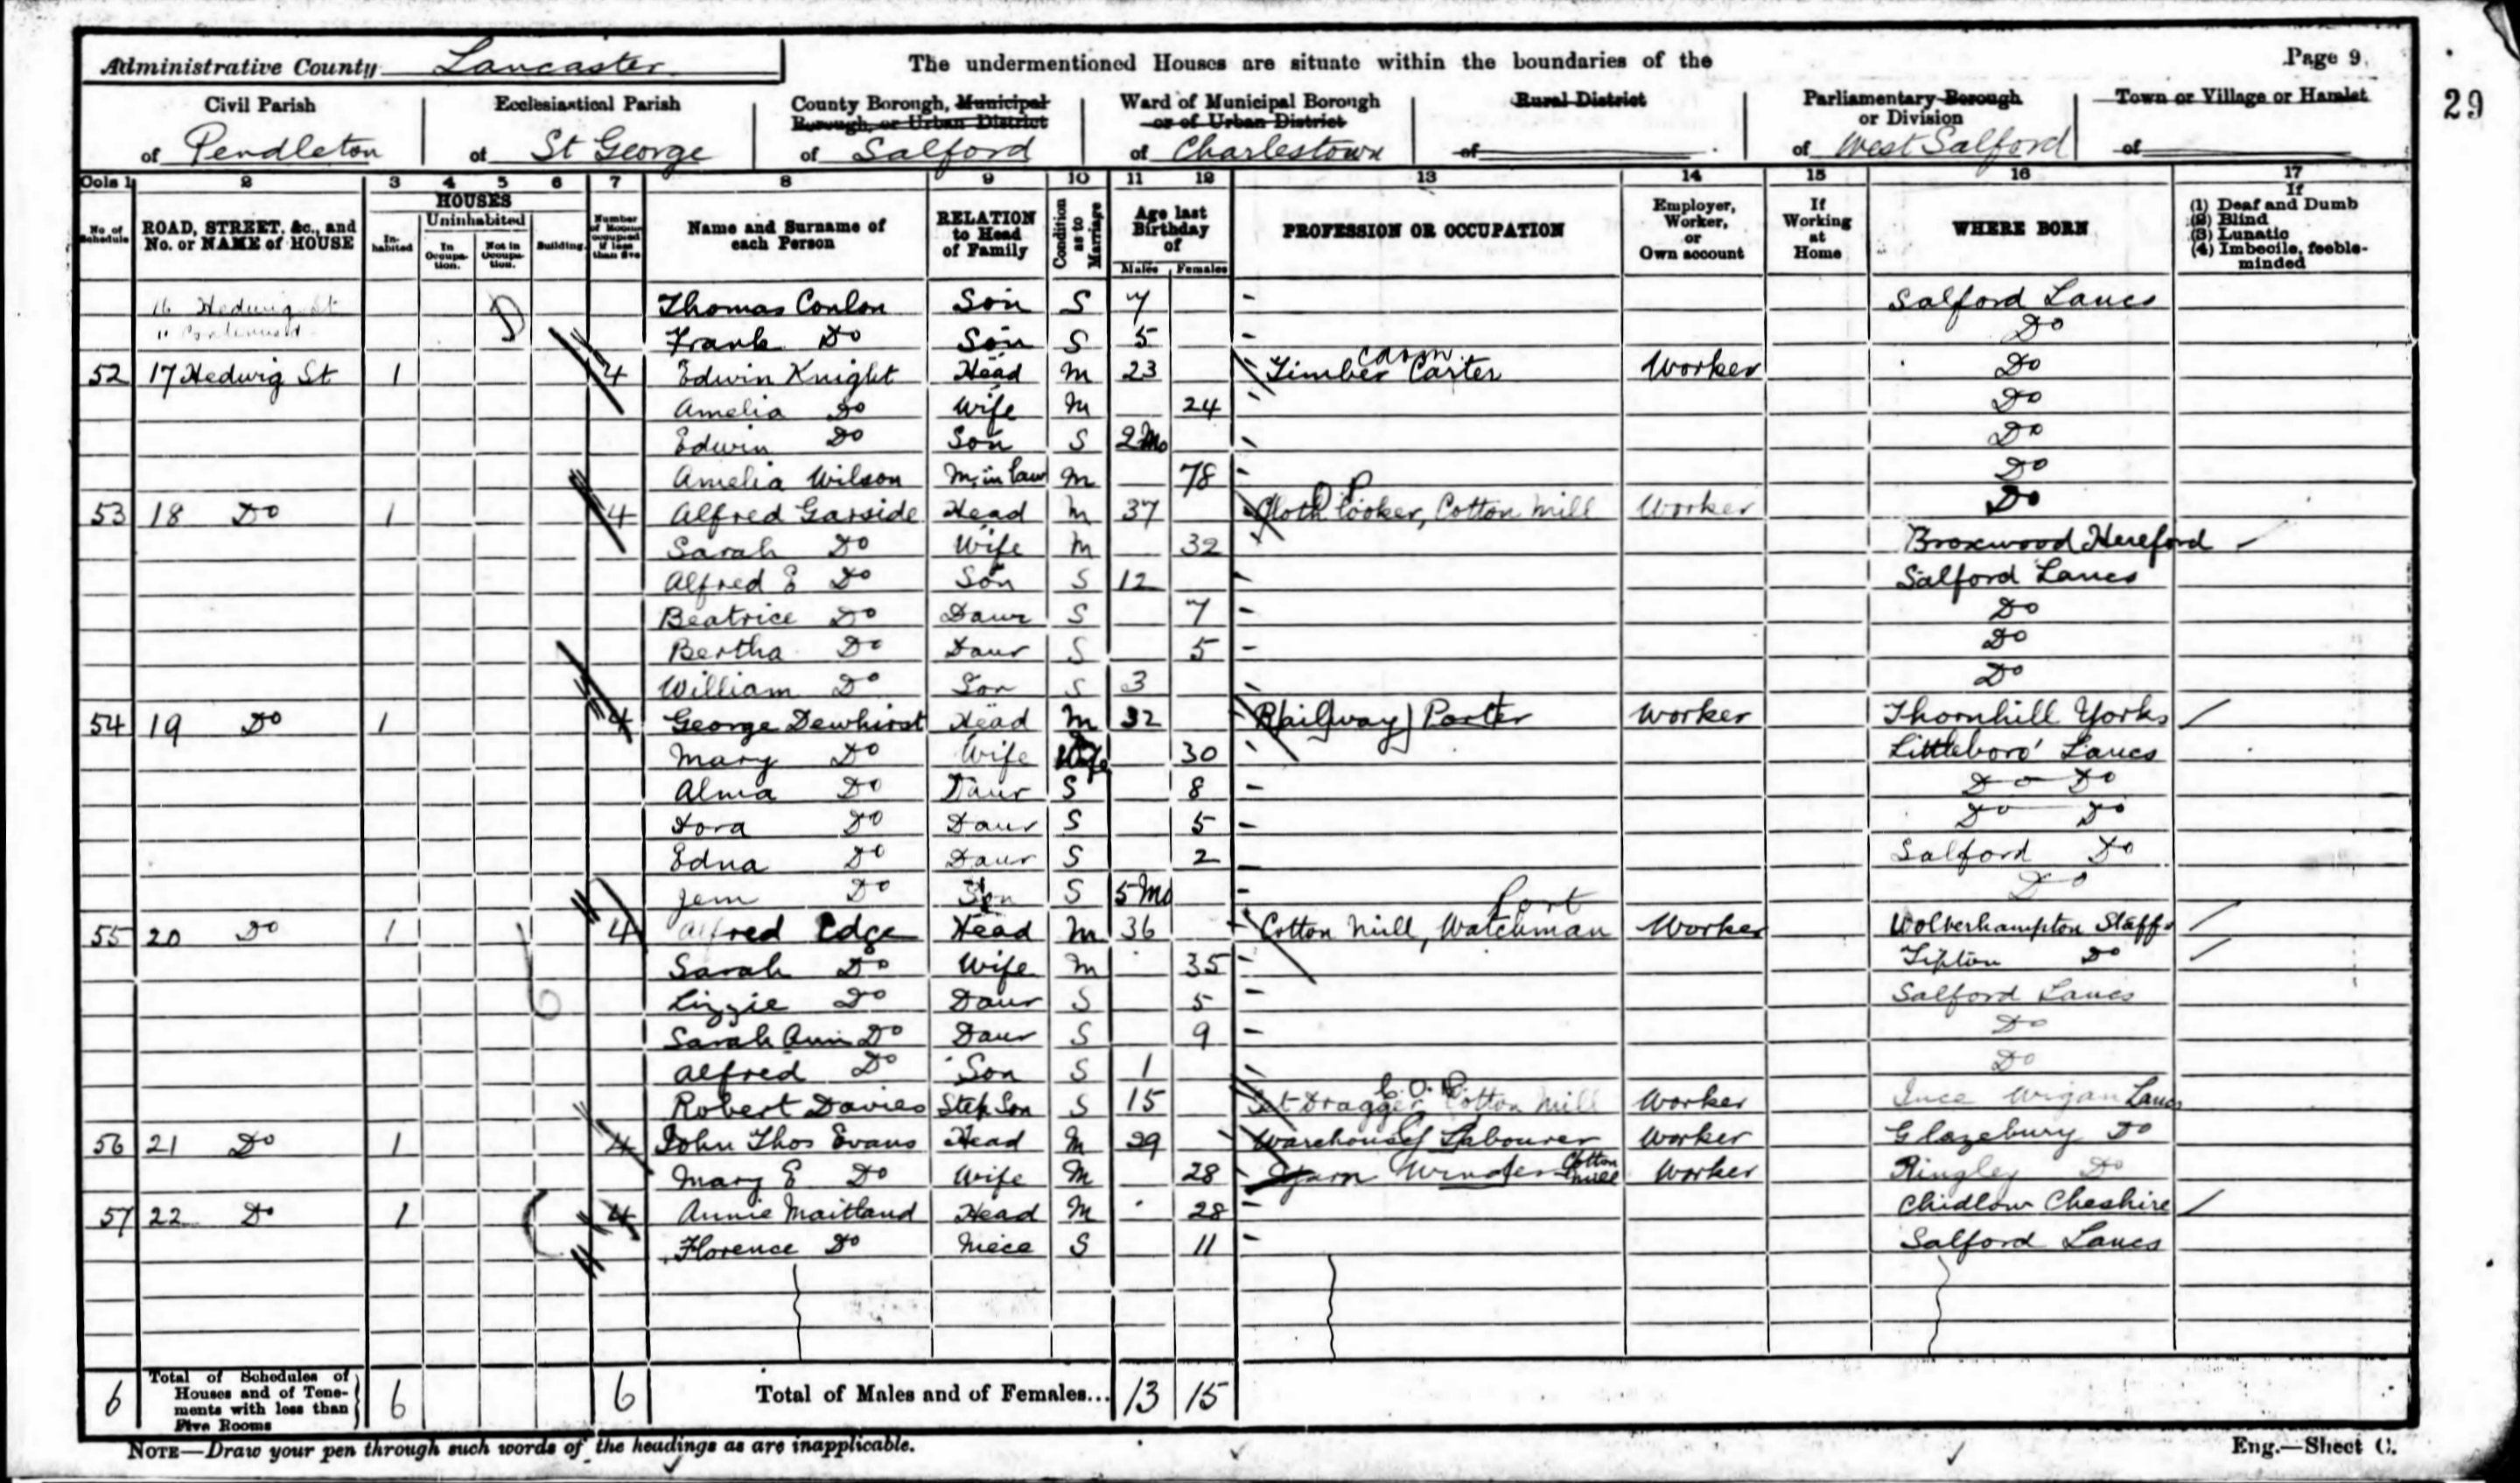 Administrative County Lancaster The undermentioned Houses are situate within the boundaries of the Page 9
29
Civil Parish of Pendleton
Ecclesiastical Parish of St George
County Borough, Municipal Borough, or Urban District of Salford
Ward of Municipal Borough or of Urban District of Charlestown
Rural District of
Parliamentary Borough or Division of West Salford
Town or Village or Hamlet of
Cols 1 2 3 4 5 6 7 8 9 10 11 12 13 14 15 16 17
No. of Schedule
ROAD, STREET, &c., and No. or NAME of HOUSE
HOUSES
Inhabited
Uninhabited
In Occupation.
Not in Occupation.
Building.
Number of Rooms occupied if less than five
Name and Surname of each Person
RELATION to Head of Family
Condition as to Marriage
Age last Birthday of
Males Females
PROFESSION OR OCCUPATION
Employer, Worker, or Own account
If Working at Home
WHERE BORN
If
(1) Deaf and Dumb
(2) Blind
(3) Lunatic
(4) Imbecile, feeble-minded
16 Hedwig St Thomas Conlon Son S 7 - Salford Lancs
" Continued Frank Do Son S 5 - Do
52 17 Hedwig St 1 4 Edwin Knight Head M 23 Timber Carter Worker Do
Amelia Do Wife M 24 Do
Edwin Do Son S 2Mo Do
Amelia Wilson M in law M 78 - Do
53 18 Do 1 4 Alfred Garside Head M 37 Cloth Looker, Cotton Mill Worker Do
Sarah Do Wife M 32 Broxwood Hereford
Alfred E Do Son S 12 Salford Lancs
Beatrice Do Daur S 7 - Do
Bertha Do Daur S 5 - Do
William Do Son S 3 Do
54 19 Do 1 4 George Dewhirst Head M 32 R(ailway) Porter Worker Thornhill Yorks
Mary Do Wife Wife 30 Littleboro' Lancs
Alma Do Daur S 8 - Do Do
Dora Do Daur S 5 - Do Do
Edna Do Daur S 2 Salford Do
Jem Do Son S 5 Mo - Do
55 20 Do 1 4 Alfred Edge Head M 36 Cotton Mill, Watchman Worker Wolverhampton Staffs
Sarah Do Wife M 35 - Tipton Do
Lizzie Do Daur S 5 - Salford Lancs
Sarah Ann Do Daur S 9 - Do
Alfred Do Son S 1 Do
Robert Davies Step Son S 15 Set Dragger Cotton Mill Worker Ince Wigan Lancs
56 21 Do 1 4 John Thos Evans Head M 29 Warehouse Labourer Worker Glazebury Do
Mary E Do Wife M 28 Yarn Winder Cotton Mill Worker Ringley Do
57 22 Do 1 4 Annie Maitland Head M 28 - Chidlow Cheshire
Florence Do Niece S 11 - Salford Lancs
6 Total of Schedules of Houses and of Tenements with less than Five Rooms 6 6 Total of Males and of Females... 13 15
NOTE—Draw your pen through such words of the headings as are inapplicable.
Eng.—Sheet C.